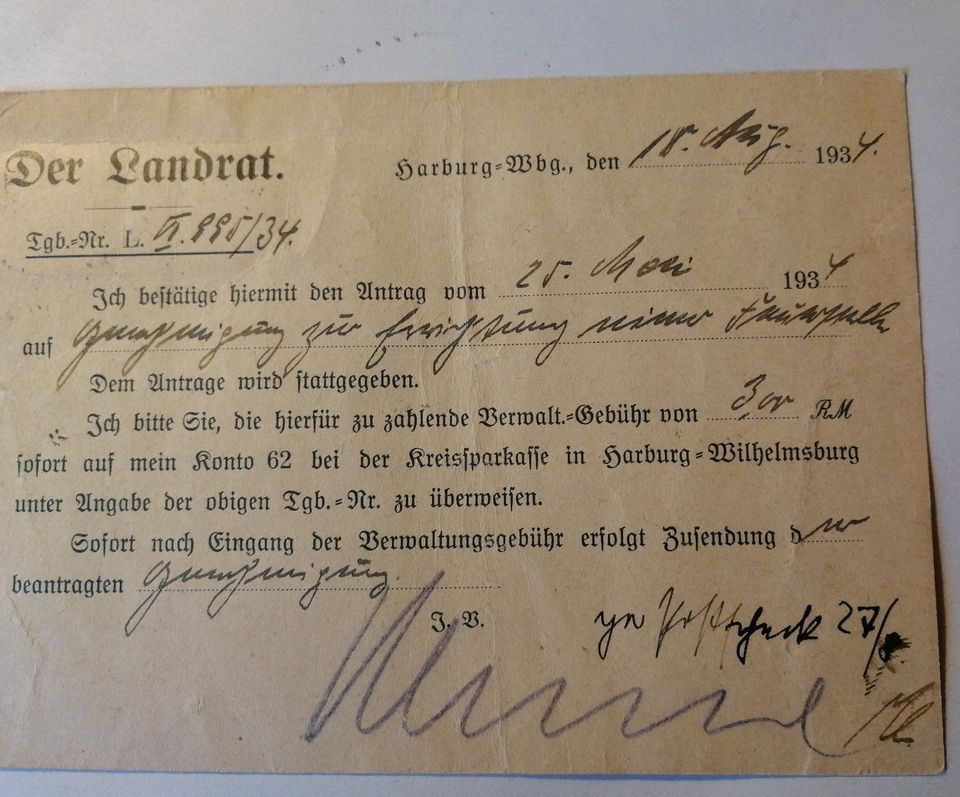 Der Landrat.
Harburg-Wbg., den 18. Aug. 1934.
Tgb.-Nr. L. 995/34.
Ich bestätige hiermit den Antrag vom 25. Mai 1934
auf Genehmigung zur Errichtung einer Feuerstelle
Dem Antrage wird stattgegeben.
Ich bitte Sie, die hierfür zu zahlende Verwalt.-Gebühr von 3,00 RM
sofort auf mein Konto 62 bei der Kreissparkasse in Harburg-Wilhelmsburg
unter Angabe der obigen Tgb.-Nr. zu überweisen.
Sofort nach Eingang der Verwaltungsgebühr erfolgt Zusendung der
beantragten Genehmigung.
I. V.
Postscheck 27/